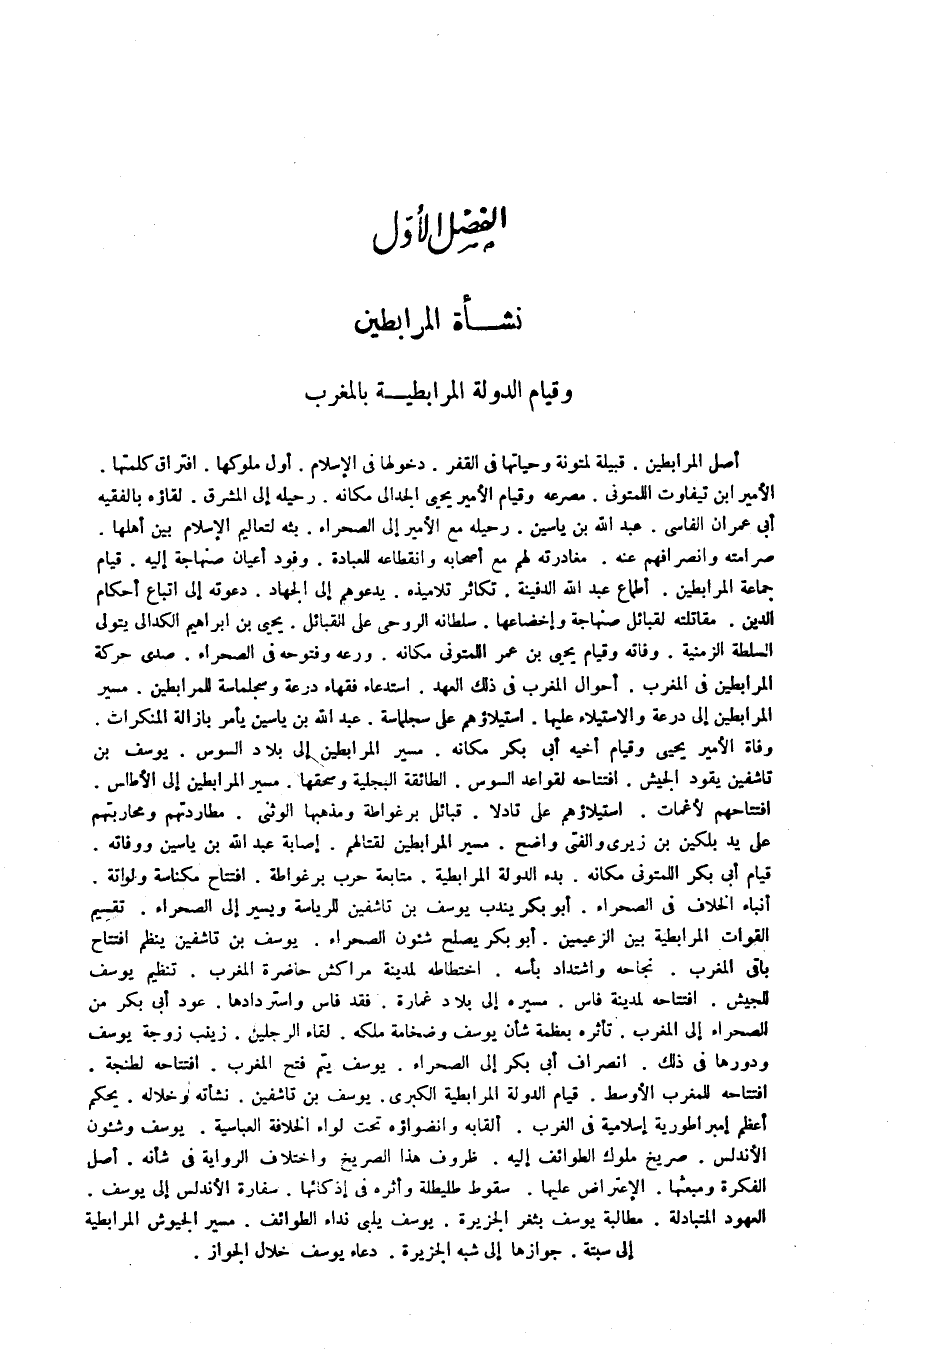 الفصل الأول
نشأة المرابطين
وقيام الدولة المرابطية بالمغرب
أصل المرابطين . قبيلة لمتونة وحياتها فى القفر . دخولها فى الإسلام . أول ملوكها . افتراق كلمتها .
الأمير ابن تيفاوت اللمتونى . مصرعه وقيام الأمير يحيى الجدالى مكانه . رحيله إلى المشرق . لقاؤه بالفقيه
أبى عمران الفاسى . عبد الله بن ياسين . رحيله مع الأمير إلى الصحراء . بثه لتعاليم الإسلام بين أهلها .
صرامته وانصرافهم عنه . مغادرته لهم مع أصحابه وانقطاعه للعبادة . وفود أعيان صنهاجة إليه . قيام
جماعة المرابطين . أطماع عبد الله الدفينة . تكاثر تلاميذه . يدعوهم إلى الجهاد . دعوته إلى اتباع أحكام
الدين . مقاتلته لقبائل صنهاجة وإخضاعها . سلطانه الروحى على القبائل . يحيى بن ابراهيم الكدالى يتولى
السلطة الزمنية . وفاته وقيام يحيى بن عمر اللمتونى مكانه . ورعه وفتوحه فى الصحراء . صدى حركة
المرابطين فى المغرب . أحوال المغرب فى ذلك العهد . استدعاء فقهاء درعة وسجلماسة للمرابطين . مسير
المرابطين إلى درعة والاستيلاء عليها . استيلاؤهم على سجلماسة . عبد الله بن ياسين يأمر بازالة المنكرات .
وفاة الأمير يحيى وقيام أخيه أبى بكر مكانه . مسير المرابطين إلى بلاد السوس . يوسف بن
تاشفين يقود الجيش . افتتاحه لقواعد السوس . الطائفة البجلية وسحقها . مسير المرابطين إلى الأطلس .
افتتاحهم لأغمات . استيلاؤهم على تادلا . قبائل برغواطة ومذهبها الوثنى . مطاردتهم ومحاربتهم
على يد بلكين بن زيرى والفتى واضح . مسير المرابطين لقتالهم . إصابة عبد الله بن ياسين ووفاته .
قيام أبى بكر اللمتونى مكانه . بدء الدولة المرابطية . متابعة حرب برغواطة . افتتاح مكناسة ولواتة .
أنباء الخلاف فى الصحراء . أبو بكر يندب يوسف بن تاشفين للرياسة ويسير إلى الصحراء . تقسيم
القوات المرابطية بين الزعيمين . أبو بكر يصلح شئون الصحراء . يوسف بن تاشفين ينظم افتتاح
باقى المغرب . نجاحه واشتداد بأسه . اختطاطه لمدينة مراكش حاضرة المغرب . تنظيم يوسف
للجيش . افتتاحه لمدينة فاس . مسيره إلى بلاد غمارة . فقد فاس واستردادها . عود أبى بكر من
الصحراء إلى المغرب . تأثره بعظمة شأن يوسف وضخامة ملكه . لقاء الرجلين . زينب زوجة يوسف
ودورها فى ذلك . انصراف أبى بكر إلى الصحراء . يوسف يتم فتح المغرب . افتتاحه لطنجة .
افتتاحه للمغرب الأوسط . قيام الدولة المرابطية الكبرى . يوسف بن تاشفين . نشأته وخلاله . يحكم
أعظم إمبراطورية إسلامية فى الغرب . ألقابه وانضواؤه تحت لواء الخلافة العباسية . يوسف وشئون
الأندلس . صريخ ملوك الطوائف إليه . ظروف هذا الصريخ واختلاف الرواية فى شأنه . أصل
الفكرة ومبعثها . الإعتراض عليها . سقوط طليطلة وأثره فى إذكائها . سفارة الأندلس إلى يوسف .
العهود المتبادلة . مطالبة يوسف بثغر الجزيرة . يوسف يلبى نداء الطوائف . مسير الجيوش المرابطية
إلى سبتة . جوازها إلى شبه الجزيرة . دعاء يوسف خلال الجواز .